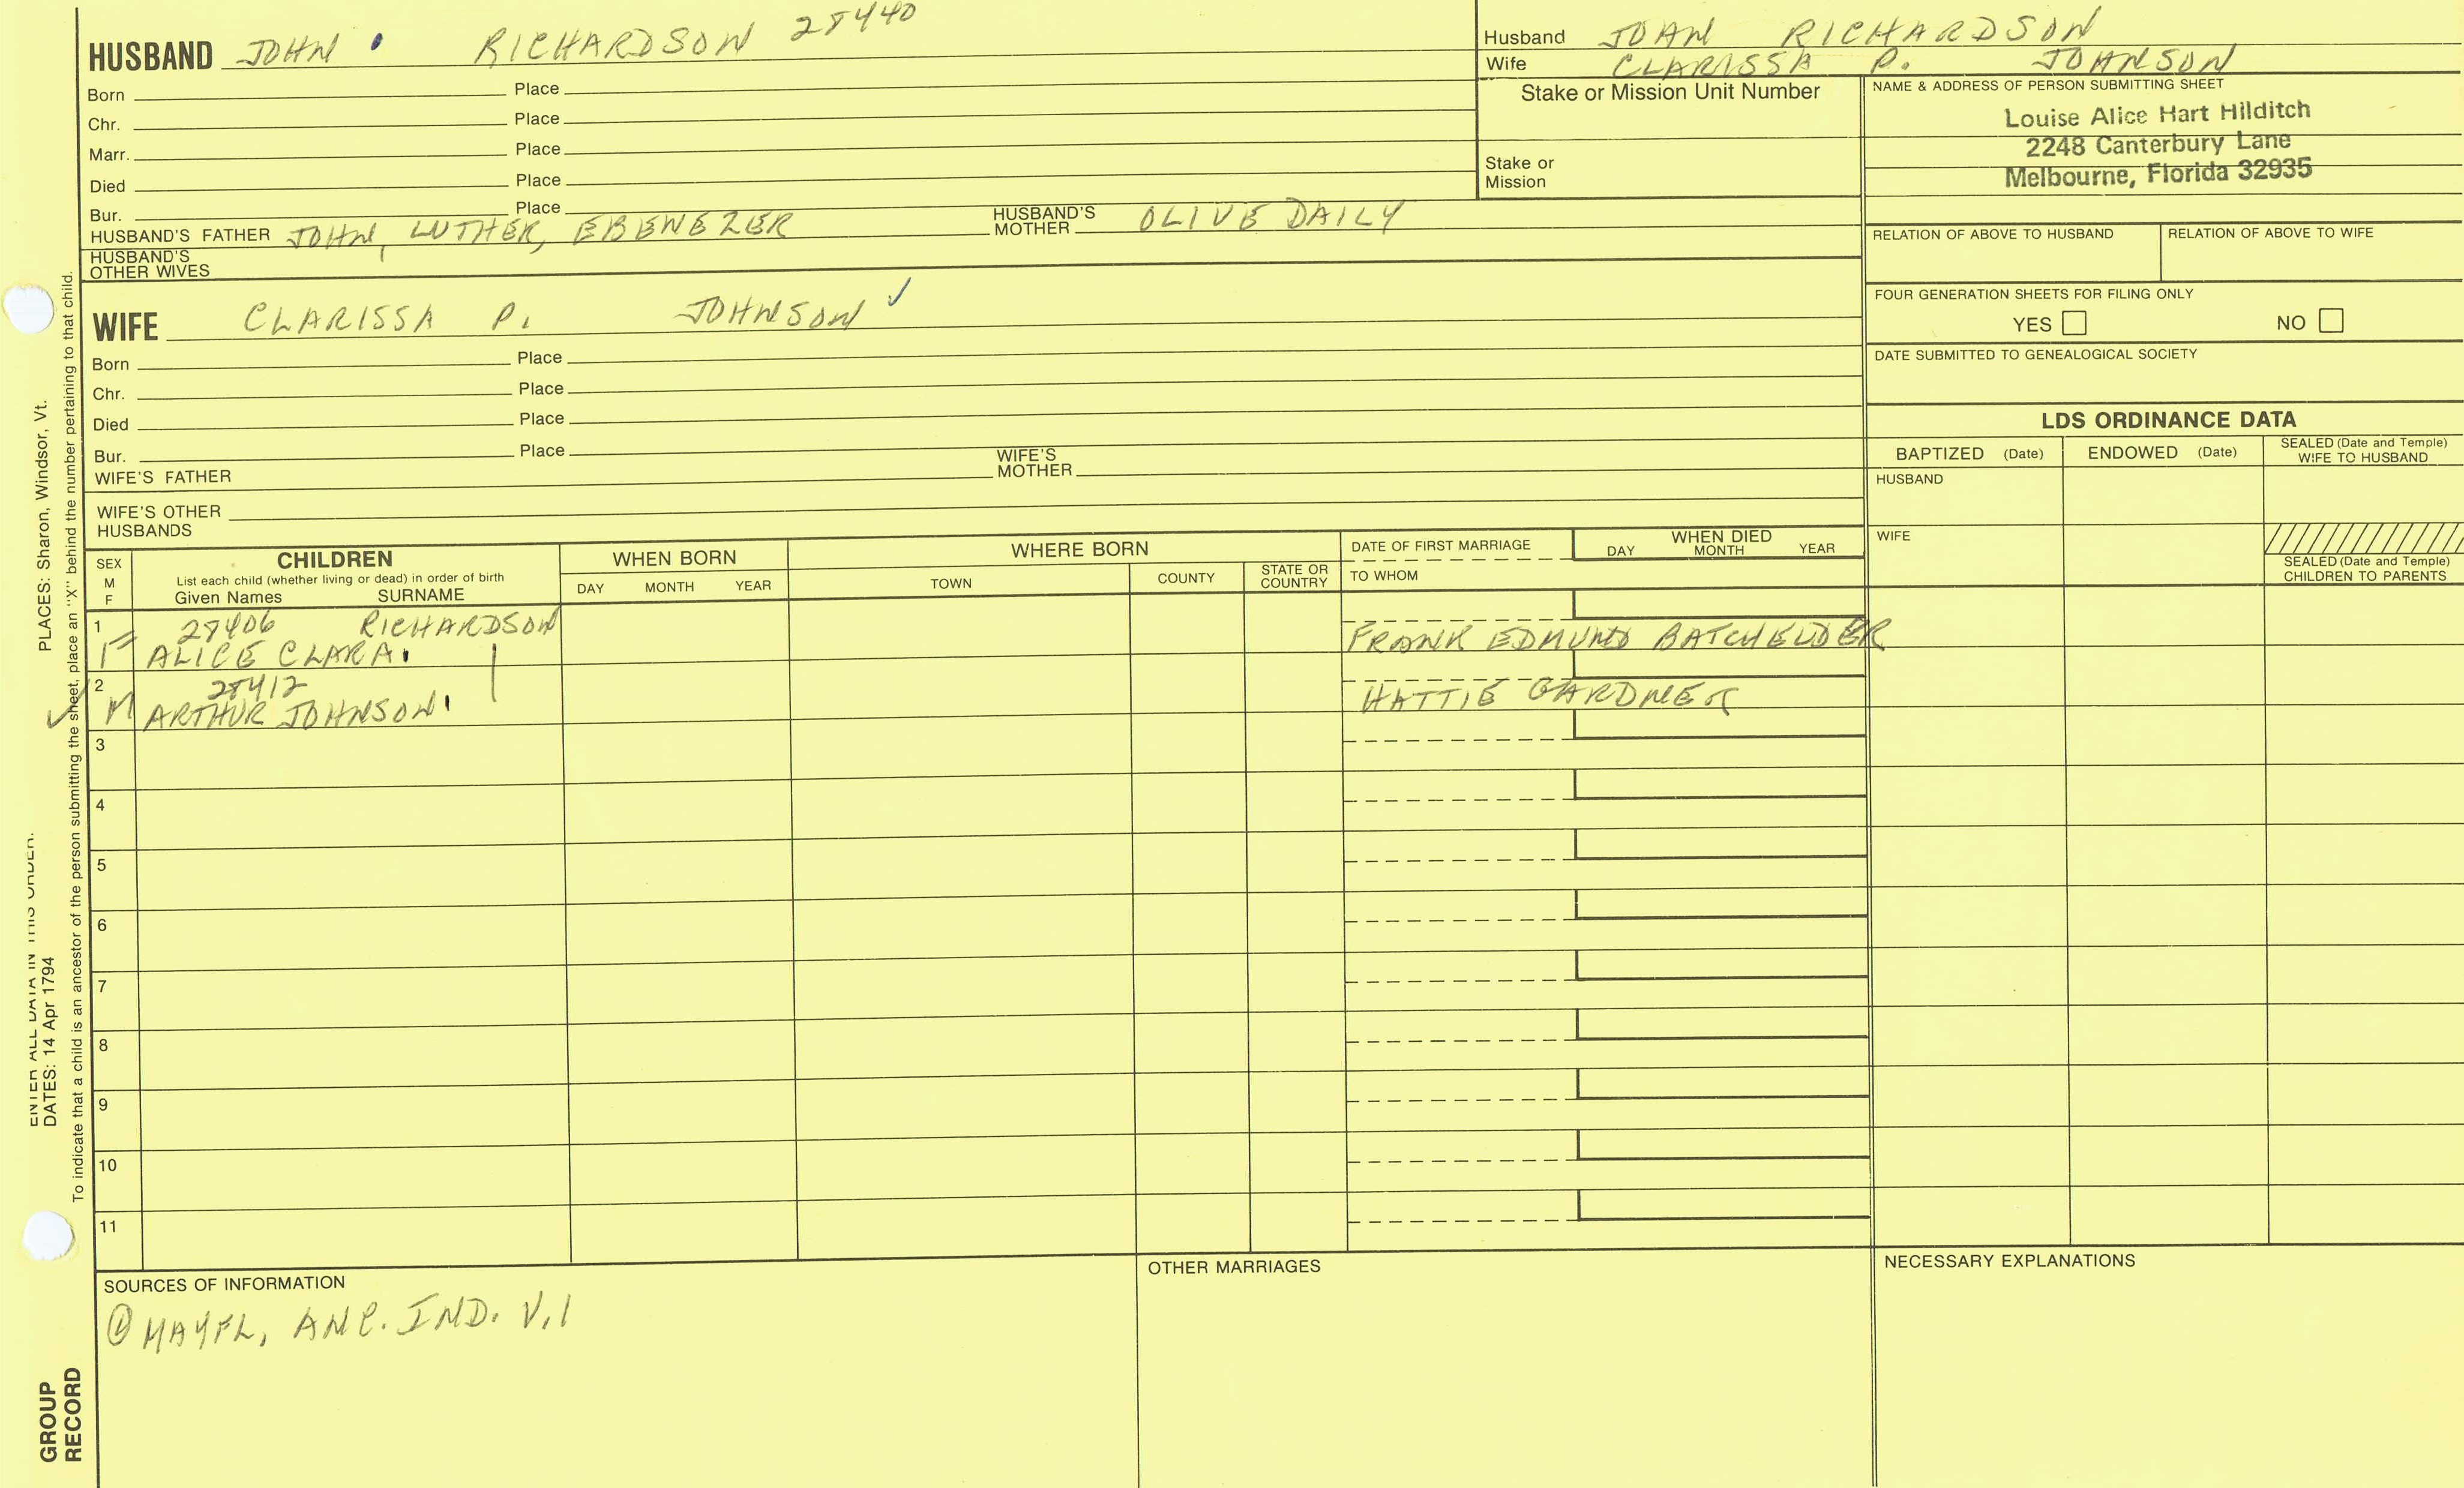 HUSBAND JOHN RICHARDSON 28440
Born Place
Chr. Place
Marr. Place
Died Place
Bur. Place
HUSBAND'S FATHER JOHN, LUTHER, EBENEZER HUSBAND'S MOTHER OLIVE DAILY
HUSBAND'S OTHER WIVES
WIFE CLARISSA P. JOHNSON ✓
Born Place
Chr. Place
Died Place
Bur. Place
WIFE'S FATHER WIFE'S MOTHER
WIFE'S OTHER HUSBANDS
Husband JOHN RICHARDSON
Wife CLARISSA P. JOHNSON
Stake or Mission Unit Number
Stake or Mission
NAME & ADDRESS OF PERSON SUBMITTING SHEET
Louise Alice Hart Hilditch
2248 Canterbury Lane
Melbourne, Florida 32935
RELATION OF ABOVE TO HUSBAND RELATION OF ABOVE TO WIFE
FOUR GENERATION SHEETS FOR FILING ONLY
YES NO
DATE SUBMITTED TO GENEALOGICAL SOCIETY
LDS ORDINANCE DATA
BAPTIZED (Date) ENDOWED (Date) SEALED (Date and Temple) WIFE TO HUSBAND
HUSBAND
WIFE
SEALED (Date and Temple) CHILDREN TO PARENTS
SEX M F
CHILDREN
List each child (whether living or dead) in order of birth
Given Names SURNAME
WHEN BORN
DAY MONTH YEAR
WHERE BORN
TOWN COUNTY STATE OR COUNTRY
DATE OF FIRST MARRIAGE
TO WHOM
WHEN DIED
DAY MONTH YEAR
1 28406 RICHARDSON
F ALICE CLARA FRANK EDMUND BATCHELDER
2 28412
✓ M ARTHUR JOHNSON HATTIE GARDNER
3
4
5
6
7
8
9
10
11
SOURCES OF INFORMATION
① MAYFL, ANC. IND. V.1
OTHER MARRIAGES
NECESSARY EXPLANATIONS
ENTER ALL DATA IN THIS ORDER:
DATES: 14 Apr 1794 PLACES: Sharon, Windsor, Vt.
To indicate that a child is an ancestor of the person submitting the sheet, place an "X" behind the number pertaining to that child.
GROUP
RECORD